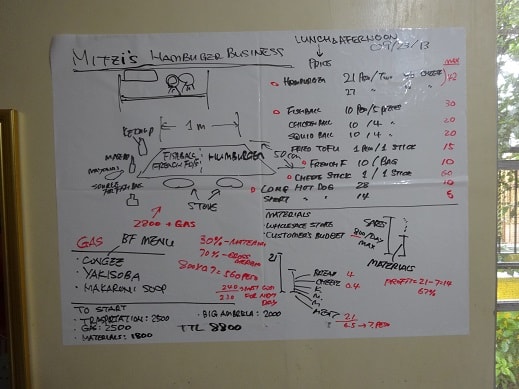 MITZI'S HAMBURGER BUSINESS
LUNCH & AFTERNOON
09/23/13
PRICE
HAMBURGER 21 PESO/TWO W/O CHEESE
27 " "
FISHBALL 10 PESO/5 PIECES 30
CHICKENBALL 10/4 " 20
SQUID BALL 10/4 " 20
FRIED TOFU 1 PESO/1 STICK 15
FRENCH F 10/BAG 10
CHEESE STICK 1/1 STICK
LONG HOT DOG 28 10
SHORT " 14
KETCHUP
1 m
50 cm
FISHBALL
FRENCH FRY
HUMBURGER
STOVE
2800 + GAS
GAS
BF MENU
• CONGEE
• YAKISOBA
• MAKARONI SOOP
30% - MATERIAL
70% - GROSS
800 x 0.7 = 560 PESO
240
210
DAY
MATERIALS
WHOLESALE STORE
CUSTOMER'S BUDGET
SALES
MAX
MATERIALS
PROFIT = 21 - 7 = 14
67%
21
BREAD 4
CHEEZE 0.4
K
M
M
MEAT 2.1
6.5 → 7 PESO
TO START
• TRASPORTATION: 2500
• GAS: 2500
• MATERIALS: 1800
• BIG AMBERLLA: 2000
TTL 8800